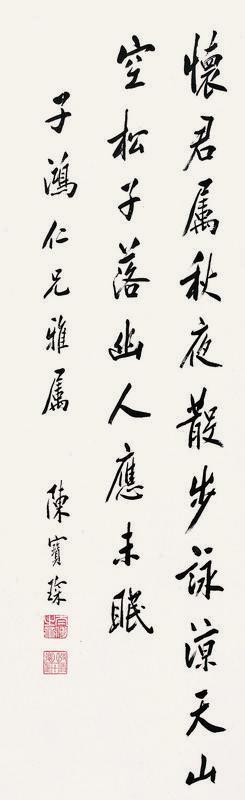 懷君屬秋夜散步詠涼天山
空松子落幽人應未眠
子鴻仁兄雅屬 陳寶琛